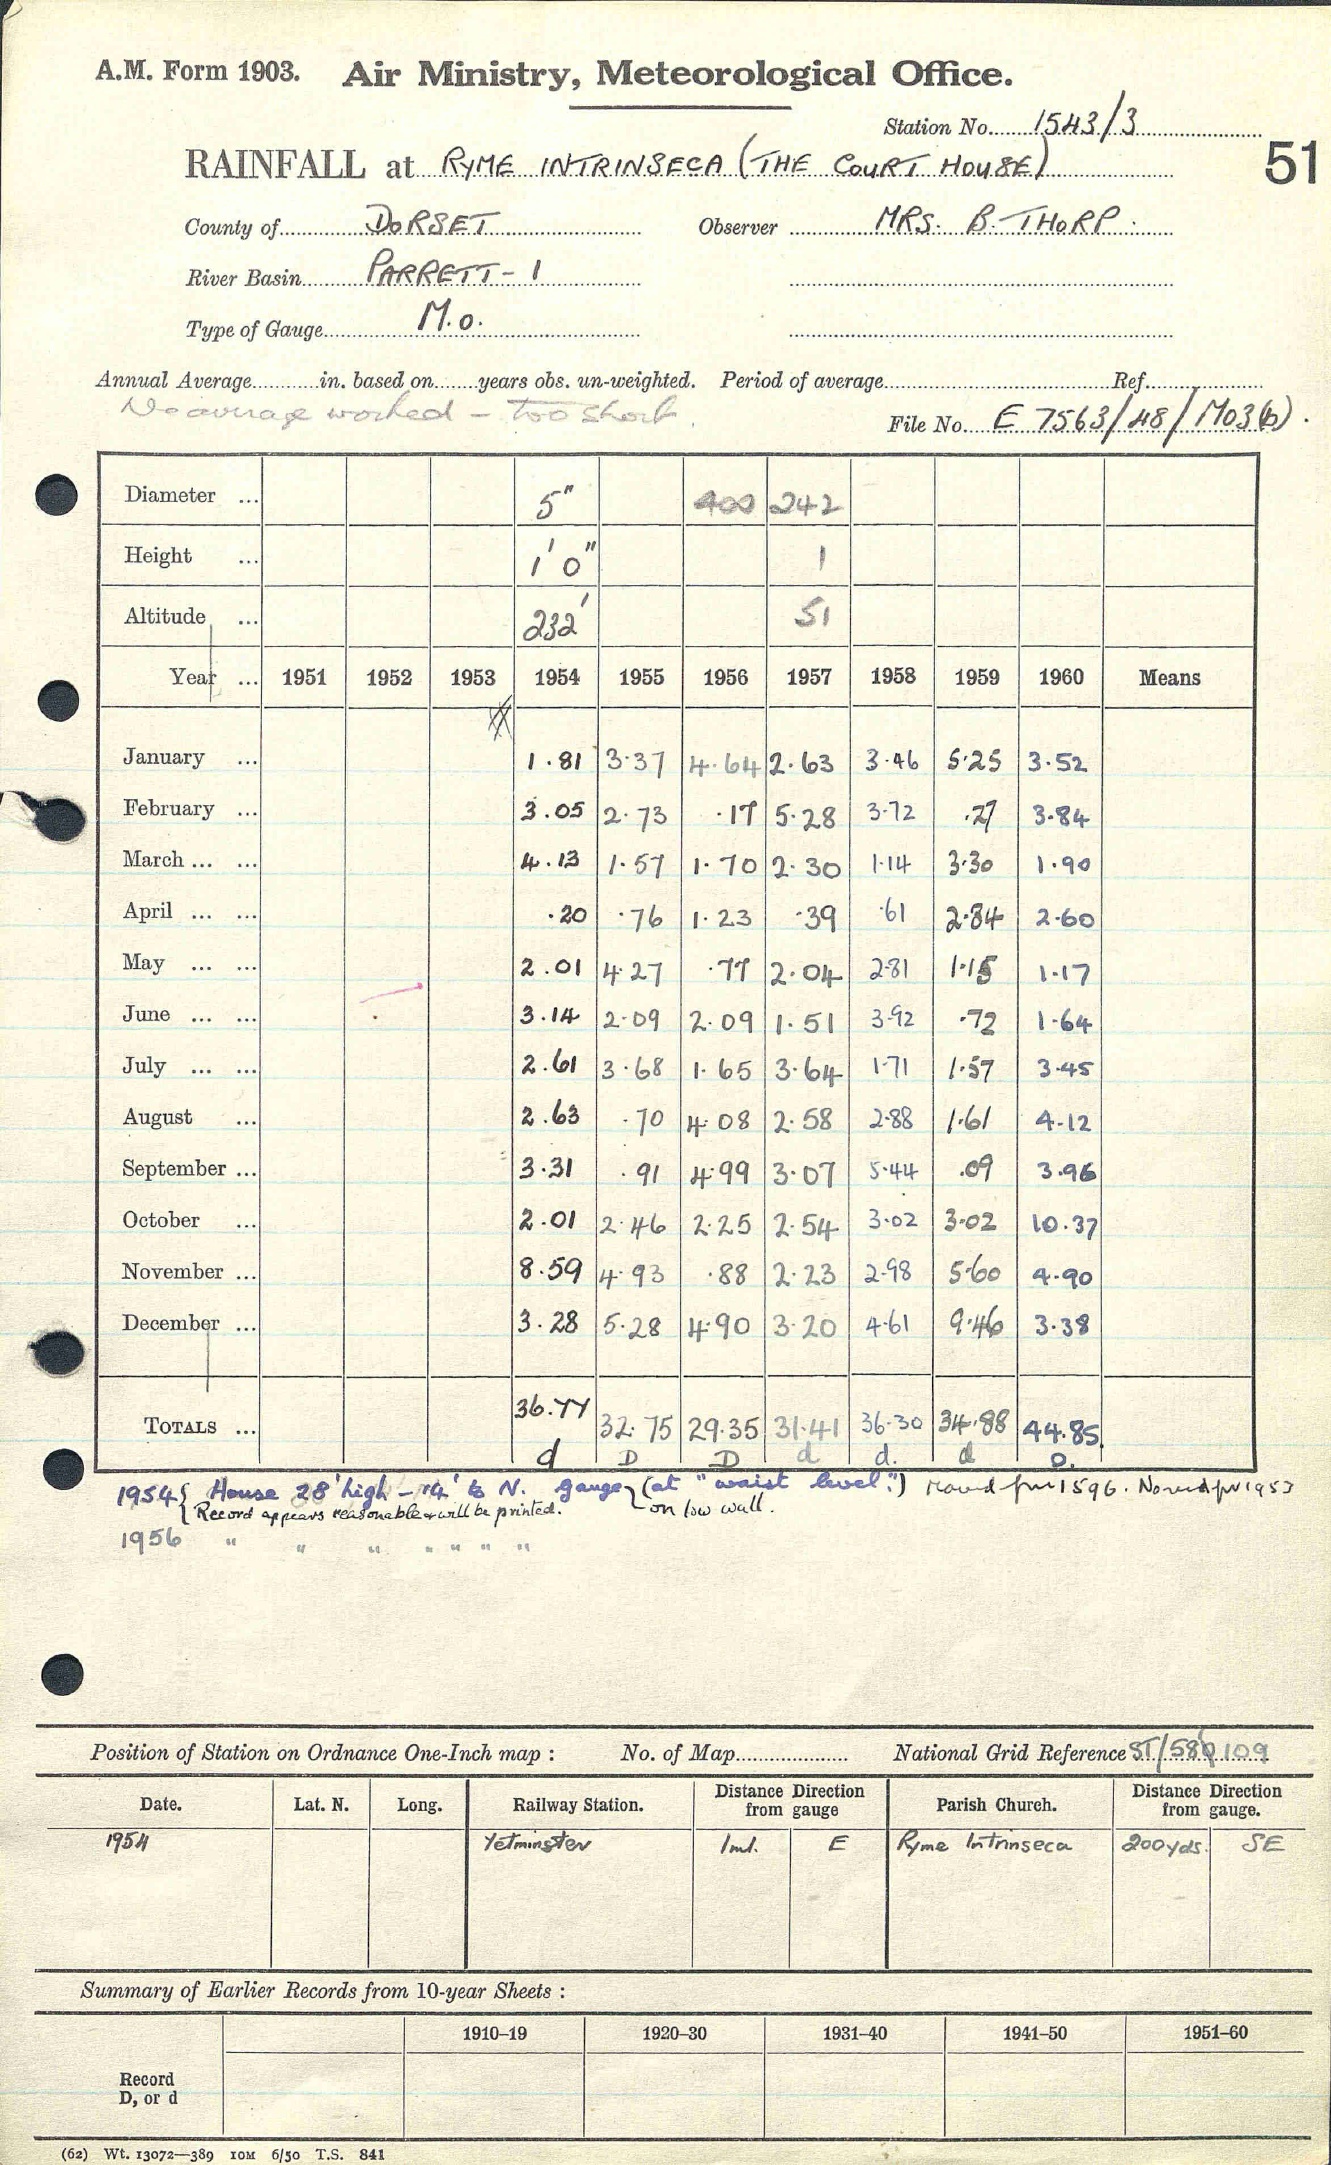 A.M. Form 1903. Air Ministry, Meteorological Office.
Station No. 1543/3
RAINFALL at RYME INTRINSECA (THE COURT HOUSE)
51
County of DORSET Observer MRS. B. THORP.
River Basin PARRETT - 1
Type of Gauge M.O.
Annual Average in. based on years obs. un-weighted. Period of average Ref.
No average worked - too short.
File No. E 7563/48/M03(b).
Diameter ... 5" 400 242
Height ... 1' 0" 1
Altitude ... 232' 51
Year ... 1951 1952 1953 1954 1955 1956 1957 1958 1959 1960 Means
January ... 1.81 3.37 4.64 2.63 3.46 5.25 3.52
February ... 3.05 2.73 .17 5.28 3.72 .27 3.84
March ... ... 4.13 1.57 1.70 2.30 1.14 3.30 1.90
April ... ... .20 .76 1.23 .39 .61 2.84 2.60
May ... ... 2.01 4.27 .77 2.04 2.81 1.15 1.17
June ... ... 3.14 2.09 2.09 1.51 3.92 .72 1.64
July ... ... 2.61 3.68 1.65 3.64 1.71 1.57 3.45
August ... 2.63 .70 4.08 2.58 2.88 1.61 4.12
September ... 3.31 .91 4.99 3.07 5.44 .09 3.96
October ... 2.01 2.46 2.25 2.54 3.02 3.02 10.37
November ... 8.59 4.93 .88 2.23 2.98 5.60 4.90
December ... 3.28 5.28 4.90 3.20 4.61 9.46 3.38
TOTALS ... 36.77 32.75 29.35 31.41 36.30 34.88 44.85
d D D d d. d D.
1954 { House 28' high - 14' to N. gauge (at "waist level".) Moved fm 1596. No red for 1953
Record appears reasonable & will be printed. on low wall.
1956 " " " " " " "
Position of Station on Ordnance One-Inch map : No. of Map National Grid Reference ST/580109
Date. Lat. N. Long. Railway Station. Distance from gauge Direction Parish Church. Distance from gauge. Direction
1954 Yetminster 1ml. E Ryme Intrinseca 200yds. SE
Summary of Earlier Records from 10-year Sheets :
1910–19 1920–30 1931–40 1941–50 1951–60
Record
D, or d
(62) Wt. 13072—389 10M 6/50 T.S. 841